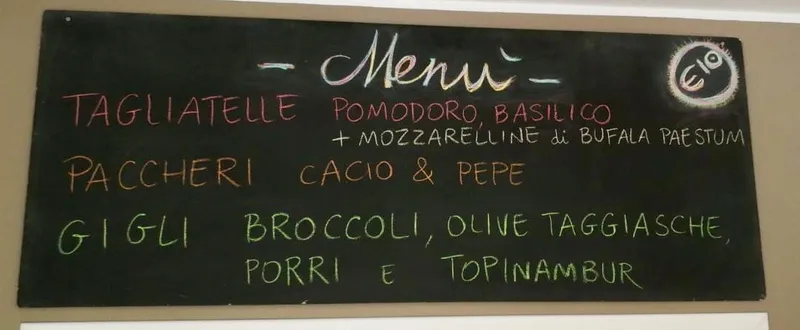 - Menù -
€10
TAGLIATELLE POMODORO, BASILICO
+ MOZZARELLINE di BUFALA PAESTUM
PACCHERI CACIO & PEPE
GIGLI BROCCOLI, OLIVE TAGGIASCHE,
PORRI E TOPINAMBUR